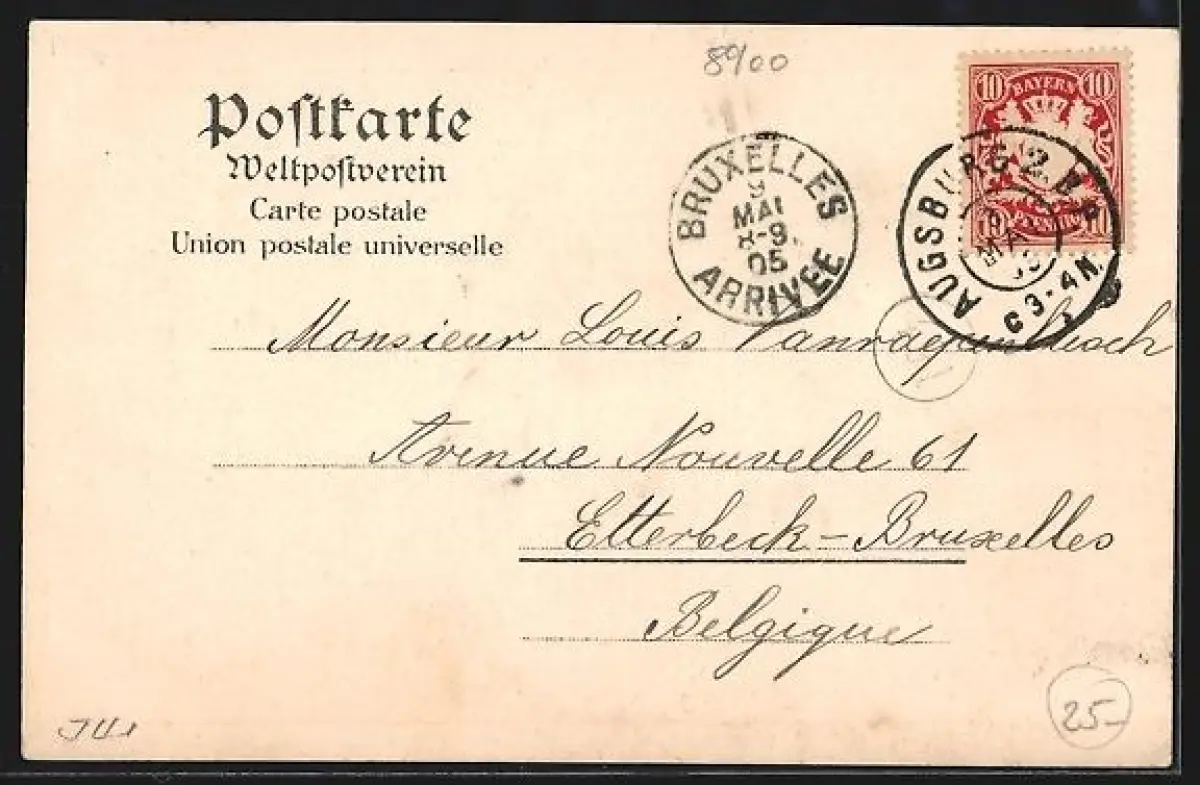 8900
Postkarte
Weltpostverein
Carte postale
Union postale universelle
BRUXELLES
9
MAI
8-9
05
ARRIVEE
10 BAYERN 10
10 PFENNIG 10
AUGSBURG 2
MAI
3-4N.
Monsieur Louis
Avenue Nouvelle 61
Etterbeck-Bruxelles
Belgique
25-